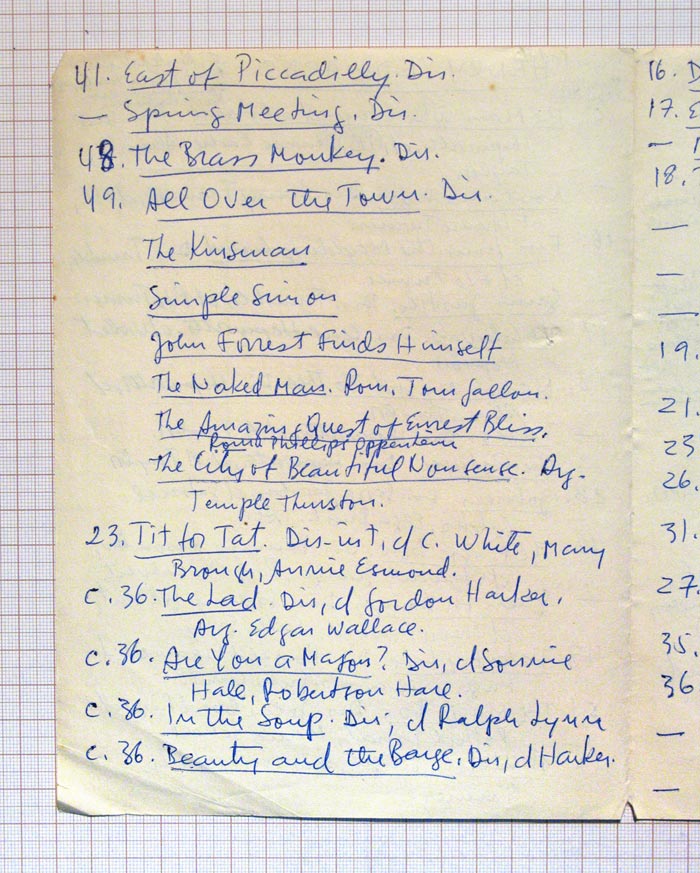 41. East of Piccadilly. Dir.
— Spring Meeting. Dir.
48. The Brass Monkey. Dir.
49. All Over the Town. Dir.
The Kinsman
Simple Simon
John Forrest Finds Himself
The Naked Man. Rom. Tom Gallon.
The Amazing Quest of Ernest Bliss.
Rom. Phillips Oppenheim
The City of Beautiful Nonsense. Arg.
Temple Thurston.
23. Tit for Tat. Dir-int, d C. White, Mary
Brough, Annie Esmond.
c. 36. The Lad. Dir, d Gordon Harker.
Arg. Edgar Wallace.
c. 36. Are You a Mason? Dir, d Sonnie
Hale, Robertson Hare.
c. 36. In the Soup. Dir, d Ralph Lynn
c. 36. Beauty and the Barge. Dir, d Harker.
16. D
17. E
—
18.
—
—
19.
21.
23
26.
31.
27.
35.
36
—
—